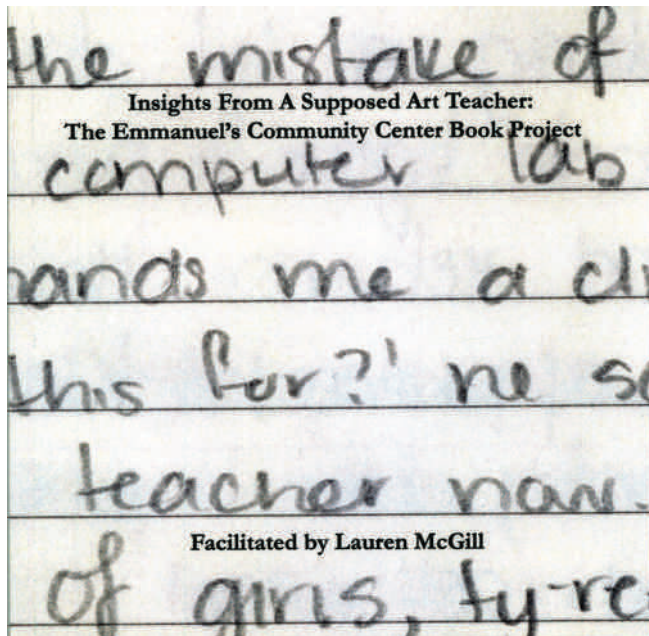 the mistake of
Insights From A Supposed Art Teacher:
The Emmanuel's Community Center Book Project
computer lab
hands me a
this for?' he
teacher now.
Facilitated by Lauren McGill
of girls, ty-re